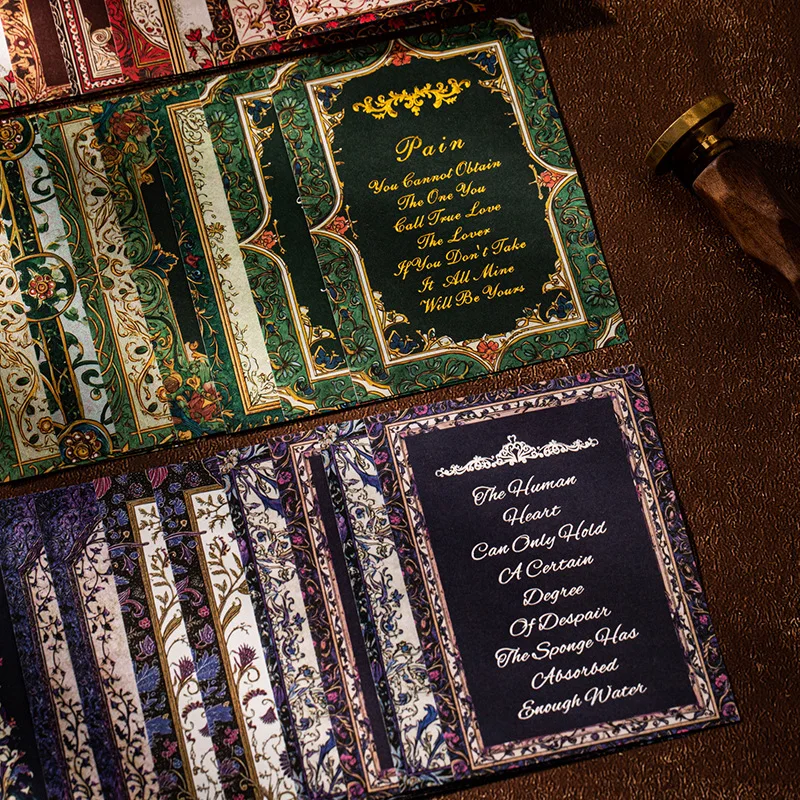 Pain
You Cannot Obtain
The One You
Call True Love
The Lover
If You Don't Take
It All Mine
Will Be Yours
The Human
Heart
Can Only Hold
A Certain
Degree
Of Despair
The Sponge Has
Absorbed
Enough Water